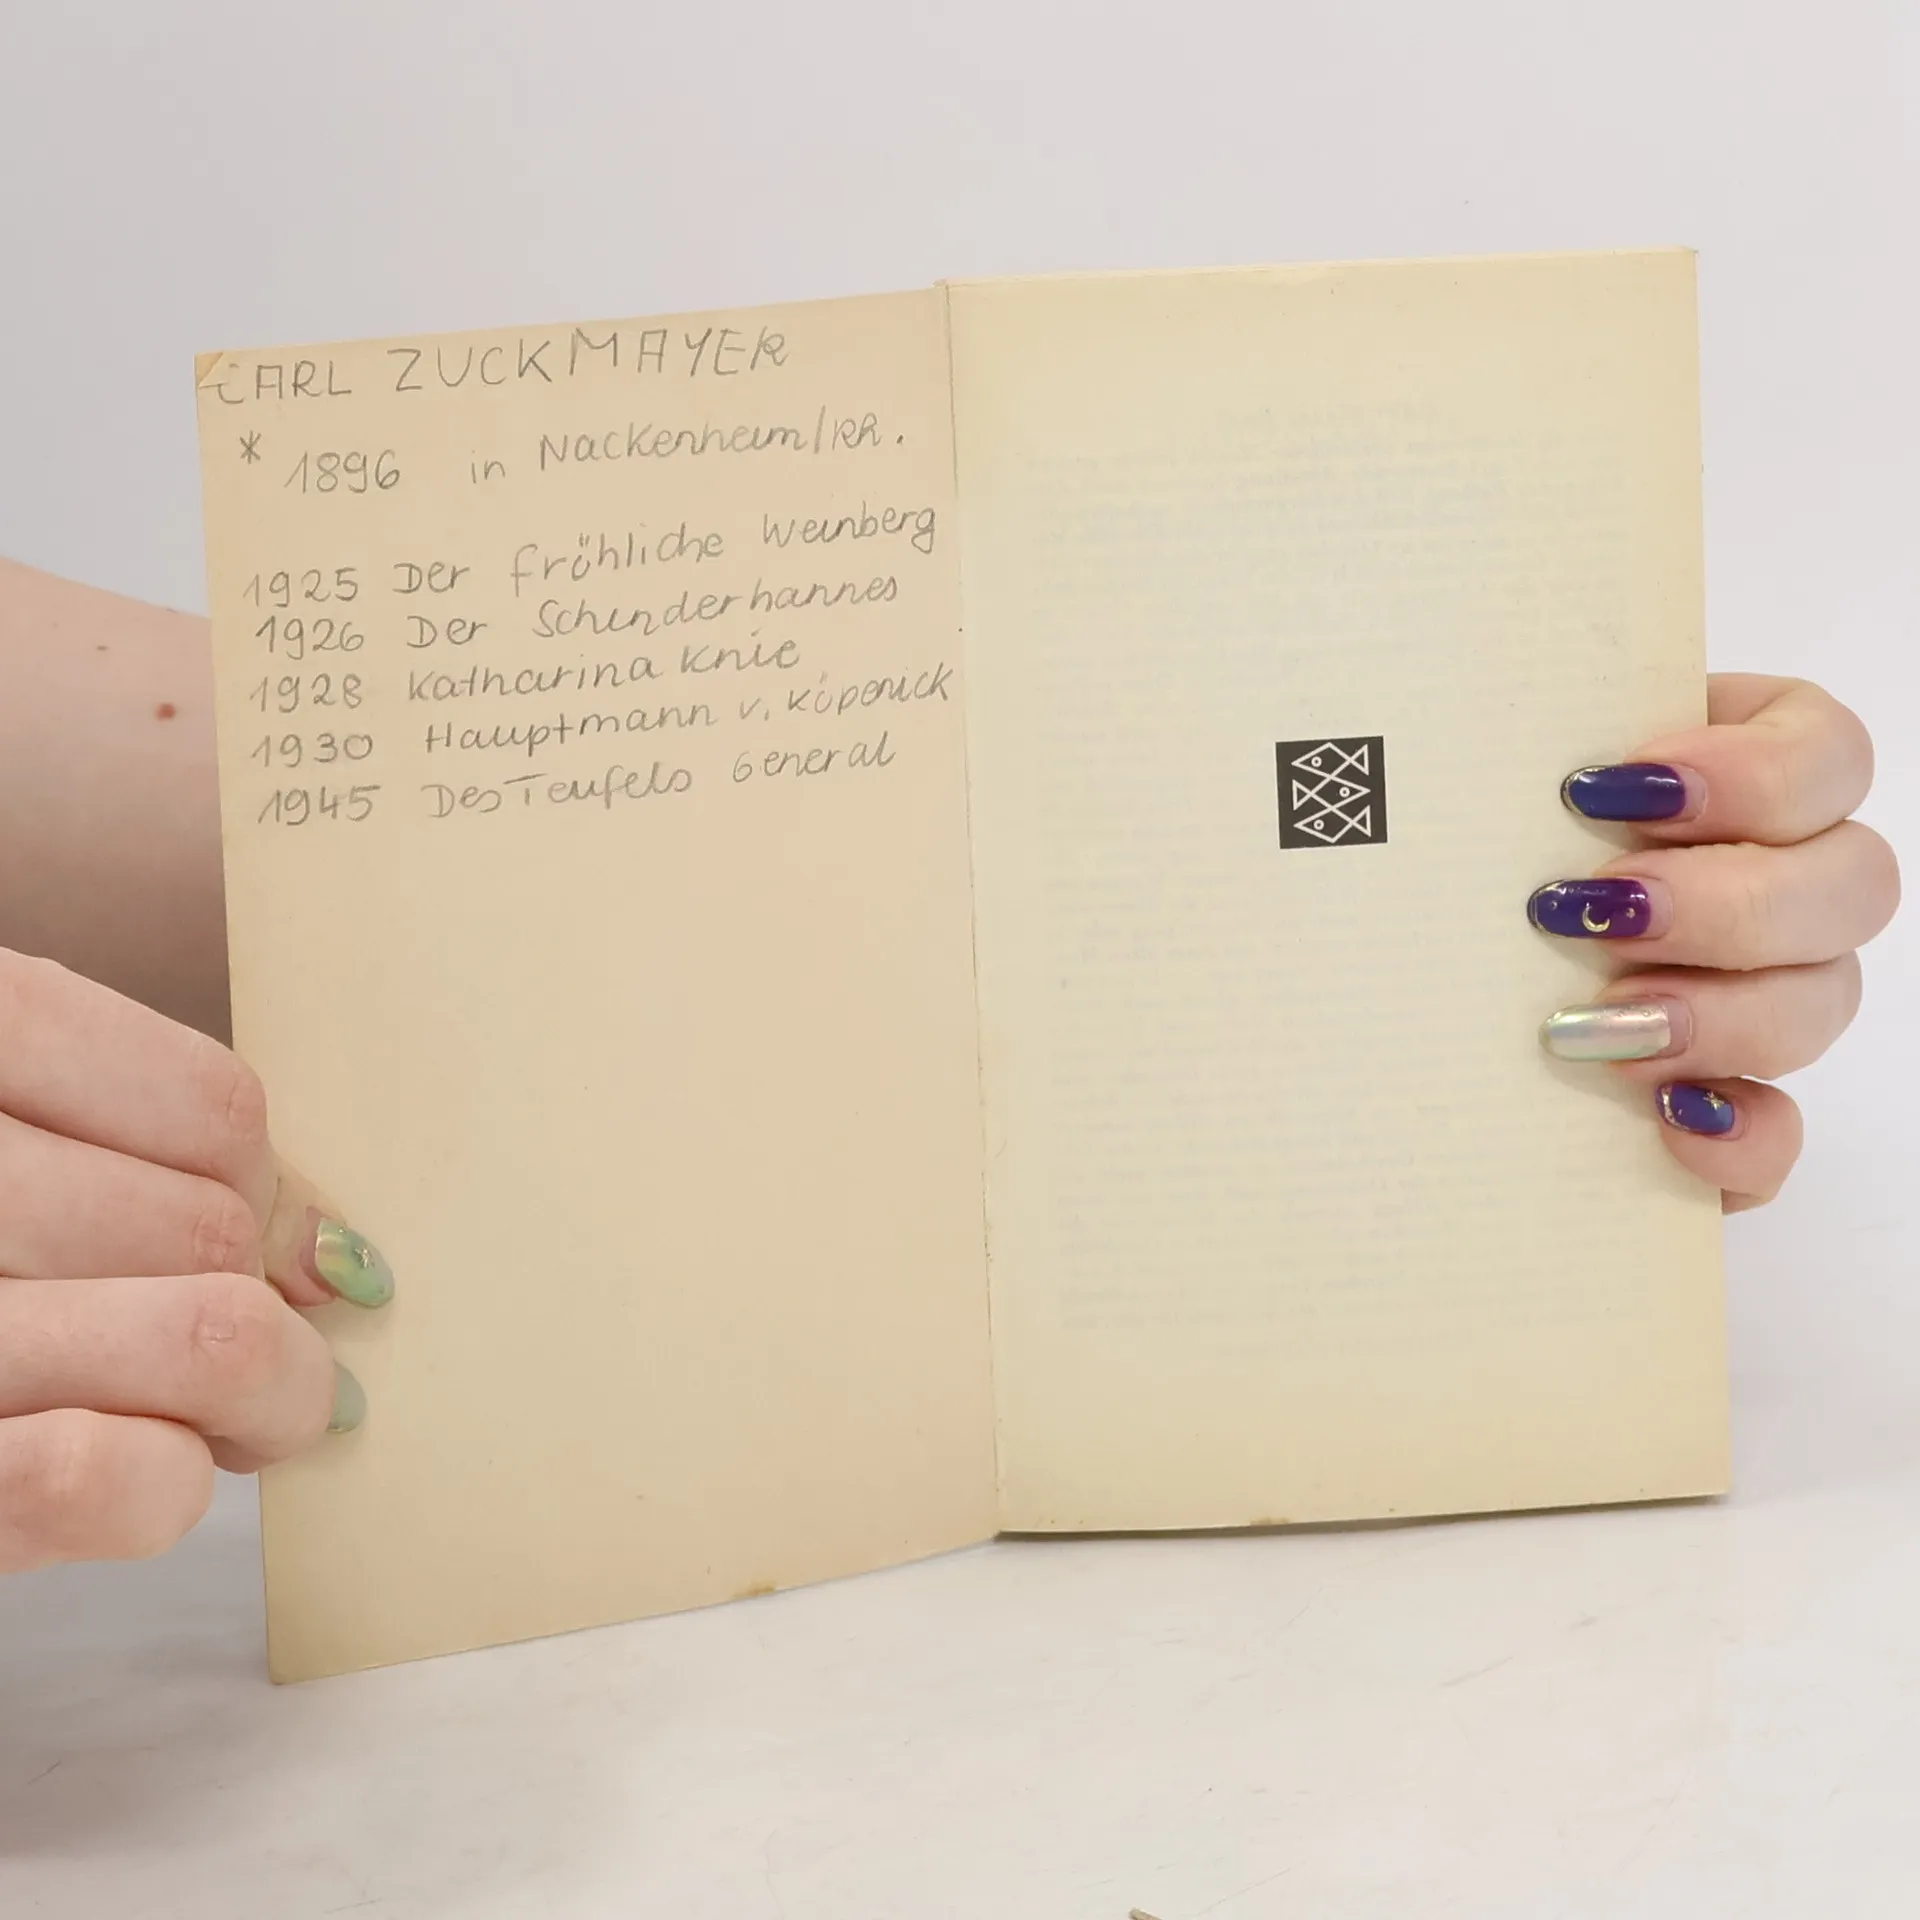 CARL ZUCKMAYER
* 1896 in Nackenheim/Rh.
1925 Der fröhliche Weinberg
1926 Der Schinderhannes
1928 Katharina Knie
1930 Hauptmann v. Köpenick
1945 Des Teufels General